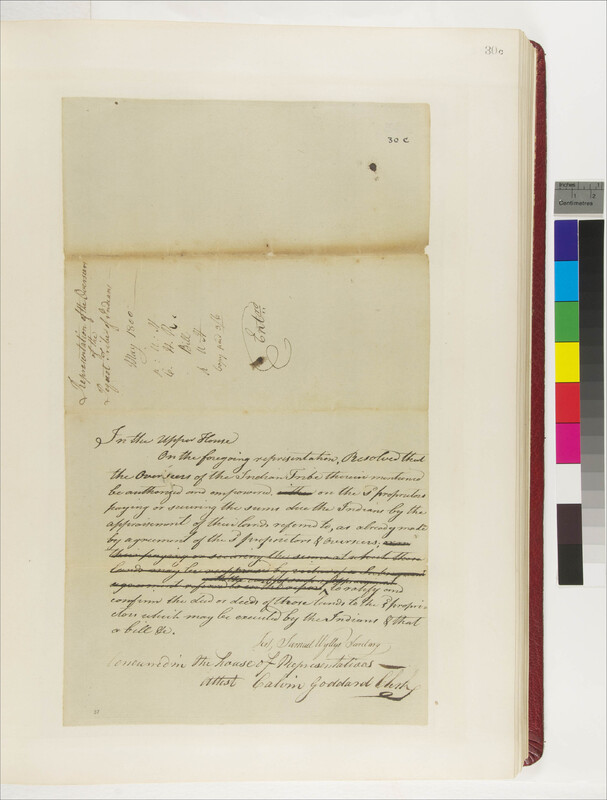 30c
30 c
Representation of the Overseers
of the
Pequot tribe of Indians
May 1800
U. H
H R.
Bill
U H
Copy paid
Ent.
In the Upper House
On the foregoing representation, Resolved that
the Overseers of the Indian Tribe therein mentioned
be authorized and impowered, on the sd proprietors
paying or securing the sums due the Indians by the
appraisement of their lands refered to, as already made
by agreement of the sd proprietors & overseers,
then paying or securing the sums at which those
lands may be appraised by
agreement
to ratify and
confirm the deed or deeds of those lands to the sd proprie
tors which may be executed by the Indians & that
a bill &c.
Test, Samuel Wyllys Secretary
Concurred in the house of Representatives
Attest Calvin Goddard Clerk
Inches
1
1
2
Centimetres